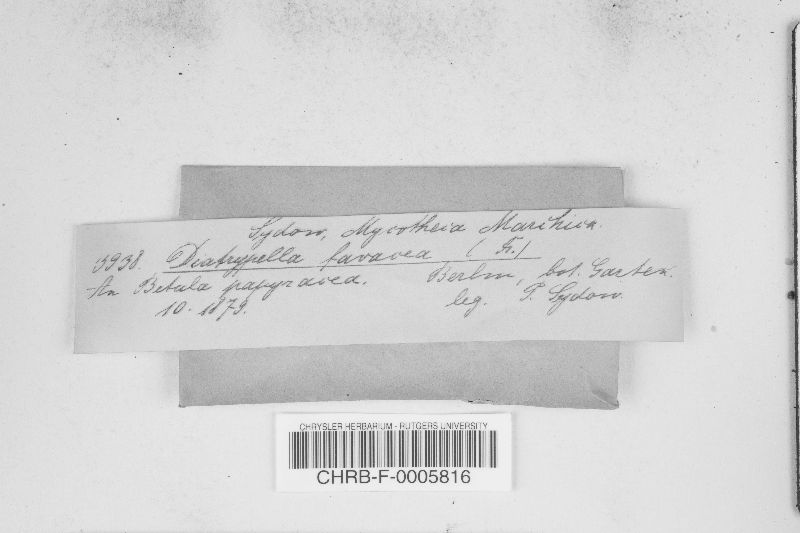 Sydow, Mycotheca Marchica.
3938. Diatrypella favacea (Fr.)
An Betula papyracea. Berlin, bot. Garten.
10. 1879. leg. P. Sydow.
CHRYSLER HERBARIUM - RUTGERS UNIVERSITY
CHRB-F-0005816